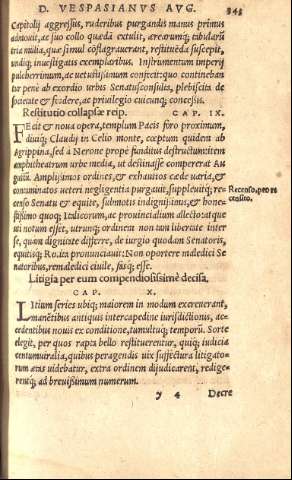 D. VESPASIANVS AVG. 343
Capitolij aggressus, ruderibus purgandis manus primus
admouit, ac suo collo quædā extulit, ærearumq; tabularū
tria millia, quæ simul cōflagrauerant, restituēda suscepit,
undiq; inuestigatis exemplaribus. Instrumentum imperij
pulcherrimum, ac uetustissimum confecit: quo contineban
tur penè ab exordio urbis Senatusconsulta, plebiscita de
societate & fœdere, ac priuilegio cuicunq; concessis.
Restitutio collapsæ reip. CAP. IX.
FEcit & noua opera, templum Pacis foro proximum,
diuiq; Claudij in Celio monte, cœptum quidem ab
Agrippina, sed à Nerone propè funditus destructum: item
amphitheatrum urbe media, ut destinasse compererat Au
gustū. Amplissimos ordines, & exhaustos cæde uaria, &
contaminatos ueteri negligentia purgauit, suppleuitq; re-
censo Senatu & equite, submotis indignißimis, & hone-
stißimo quoq; Italicorum, ac prouincialium allecto: atque
uti notum esset, utrunq; ordinem non tam libertate inter
se, quàm dignitate differre, de iurgio quodam Senatoris,
equitisq; Ro. ita pronunciauit: Non oportere maledici Se
natoribus, remaledici ciuile, fasq; esse.
Recenso, pro re
censito.
Litigia per eum compendiosissimè decisa.
CAP. X.
LItium series ubiq; maiorem in modum excreuerant,
manētibus antiquis intercapedine iurisdictionis, ac-
cedentibus nouis ex conditione, tumultuq; temporū. Sorte
elegit, per quos rapta bello restituerentur, quiq; iudicia
centumuiralia, quibus peragendis uix suffectura litigato-
rum ætas uidebatur, extra ordinem dijudicarent, redige-
rentq; ad breuißimum numerum.
y 4 Decre